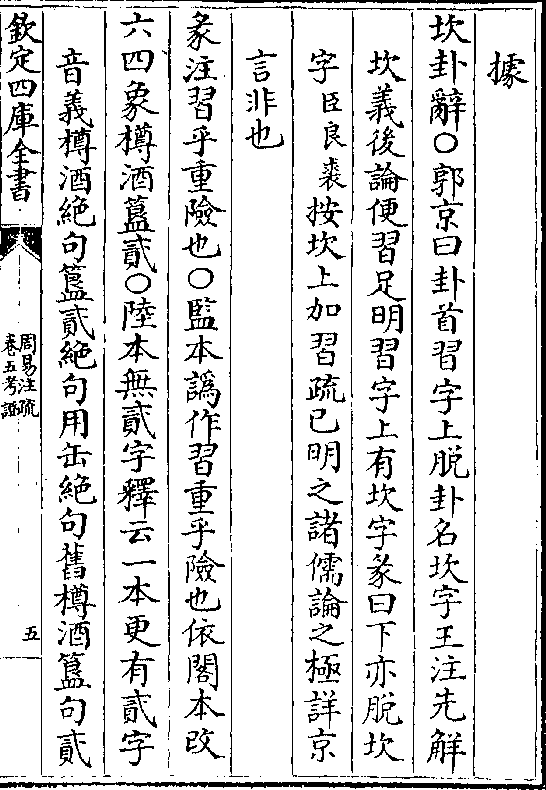 據
坎卦辭○郭京曰卦首習字上脫卦名坎字王注先解
坎義後論便習足明習字上有坎字彖曰下亦脫坎
字臣良裘按坎上加習疏已明之諸儒論之極詳京
言非也
彖注習乎重險也○監本譌作習重乎險也依閣本改
六四象樽酒簋貳○陸本無貳字釋云一本更有貳字
音義樽酒絶句簋貳絶句用缶絶句舊樽酒簋句貳
欽定四庫全書
周易注疏
卷五考證
五